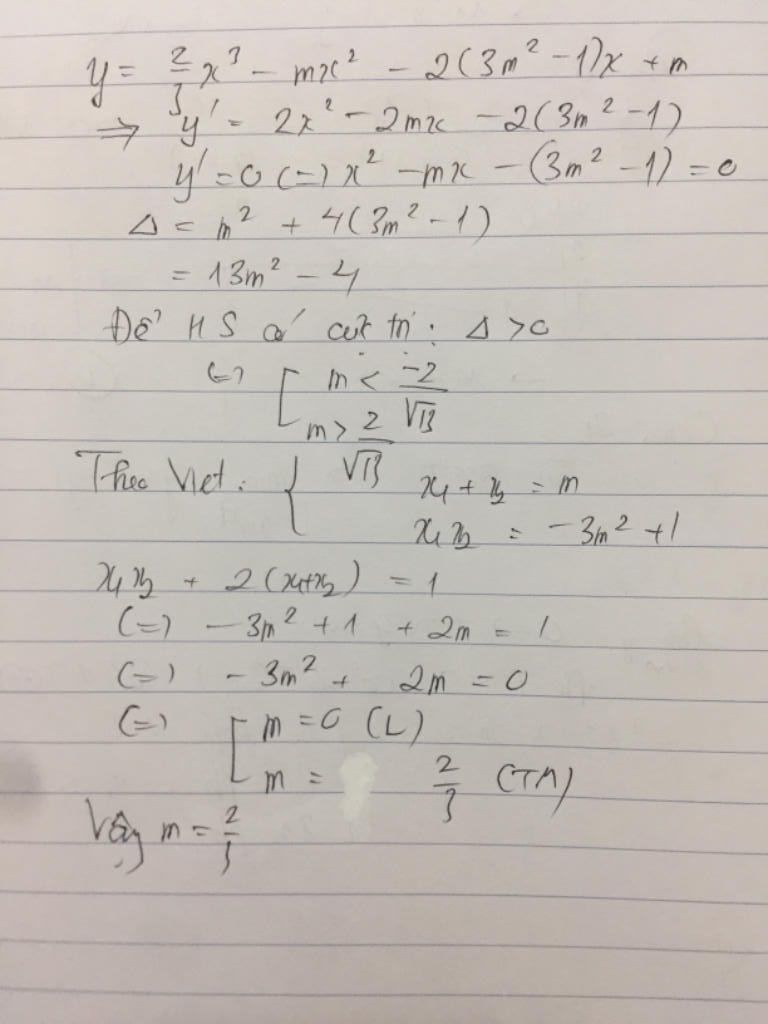 y = 2/3 x³ - mx² - 2(3m² - 1)x + m
⇒ y' = 2x² - 2mx - 2(3m² - 1)
y' = 0 (=) x² - mx - (3m² - 1) = 0
Δ = m² + 4(3m² - 1)
= 13m² - 4
Để HS có cực trị : Δ > 0
(=) [ m < -2/√13
m > 2/√13
Theo Viet : { x₁ + x₂ = m
x₁x₂ = -3m² + 1
x₁x₂ + 2(x₁+x₂) = 1
(=) -3m² + 1 + 2m = 1
(=) -3m² + 2m = 0
(=) [ m = 0 (L)
m = 2/3 (TM)
Vậy m = 2/3